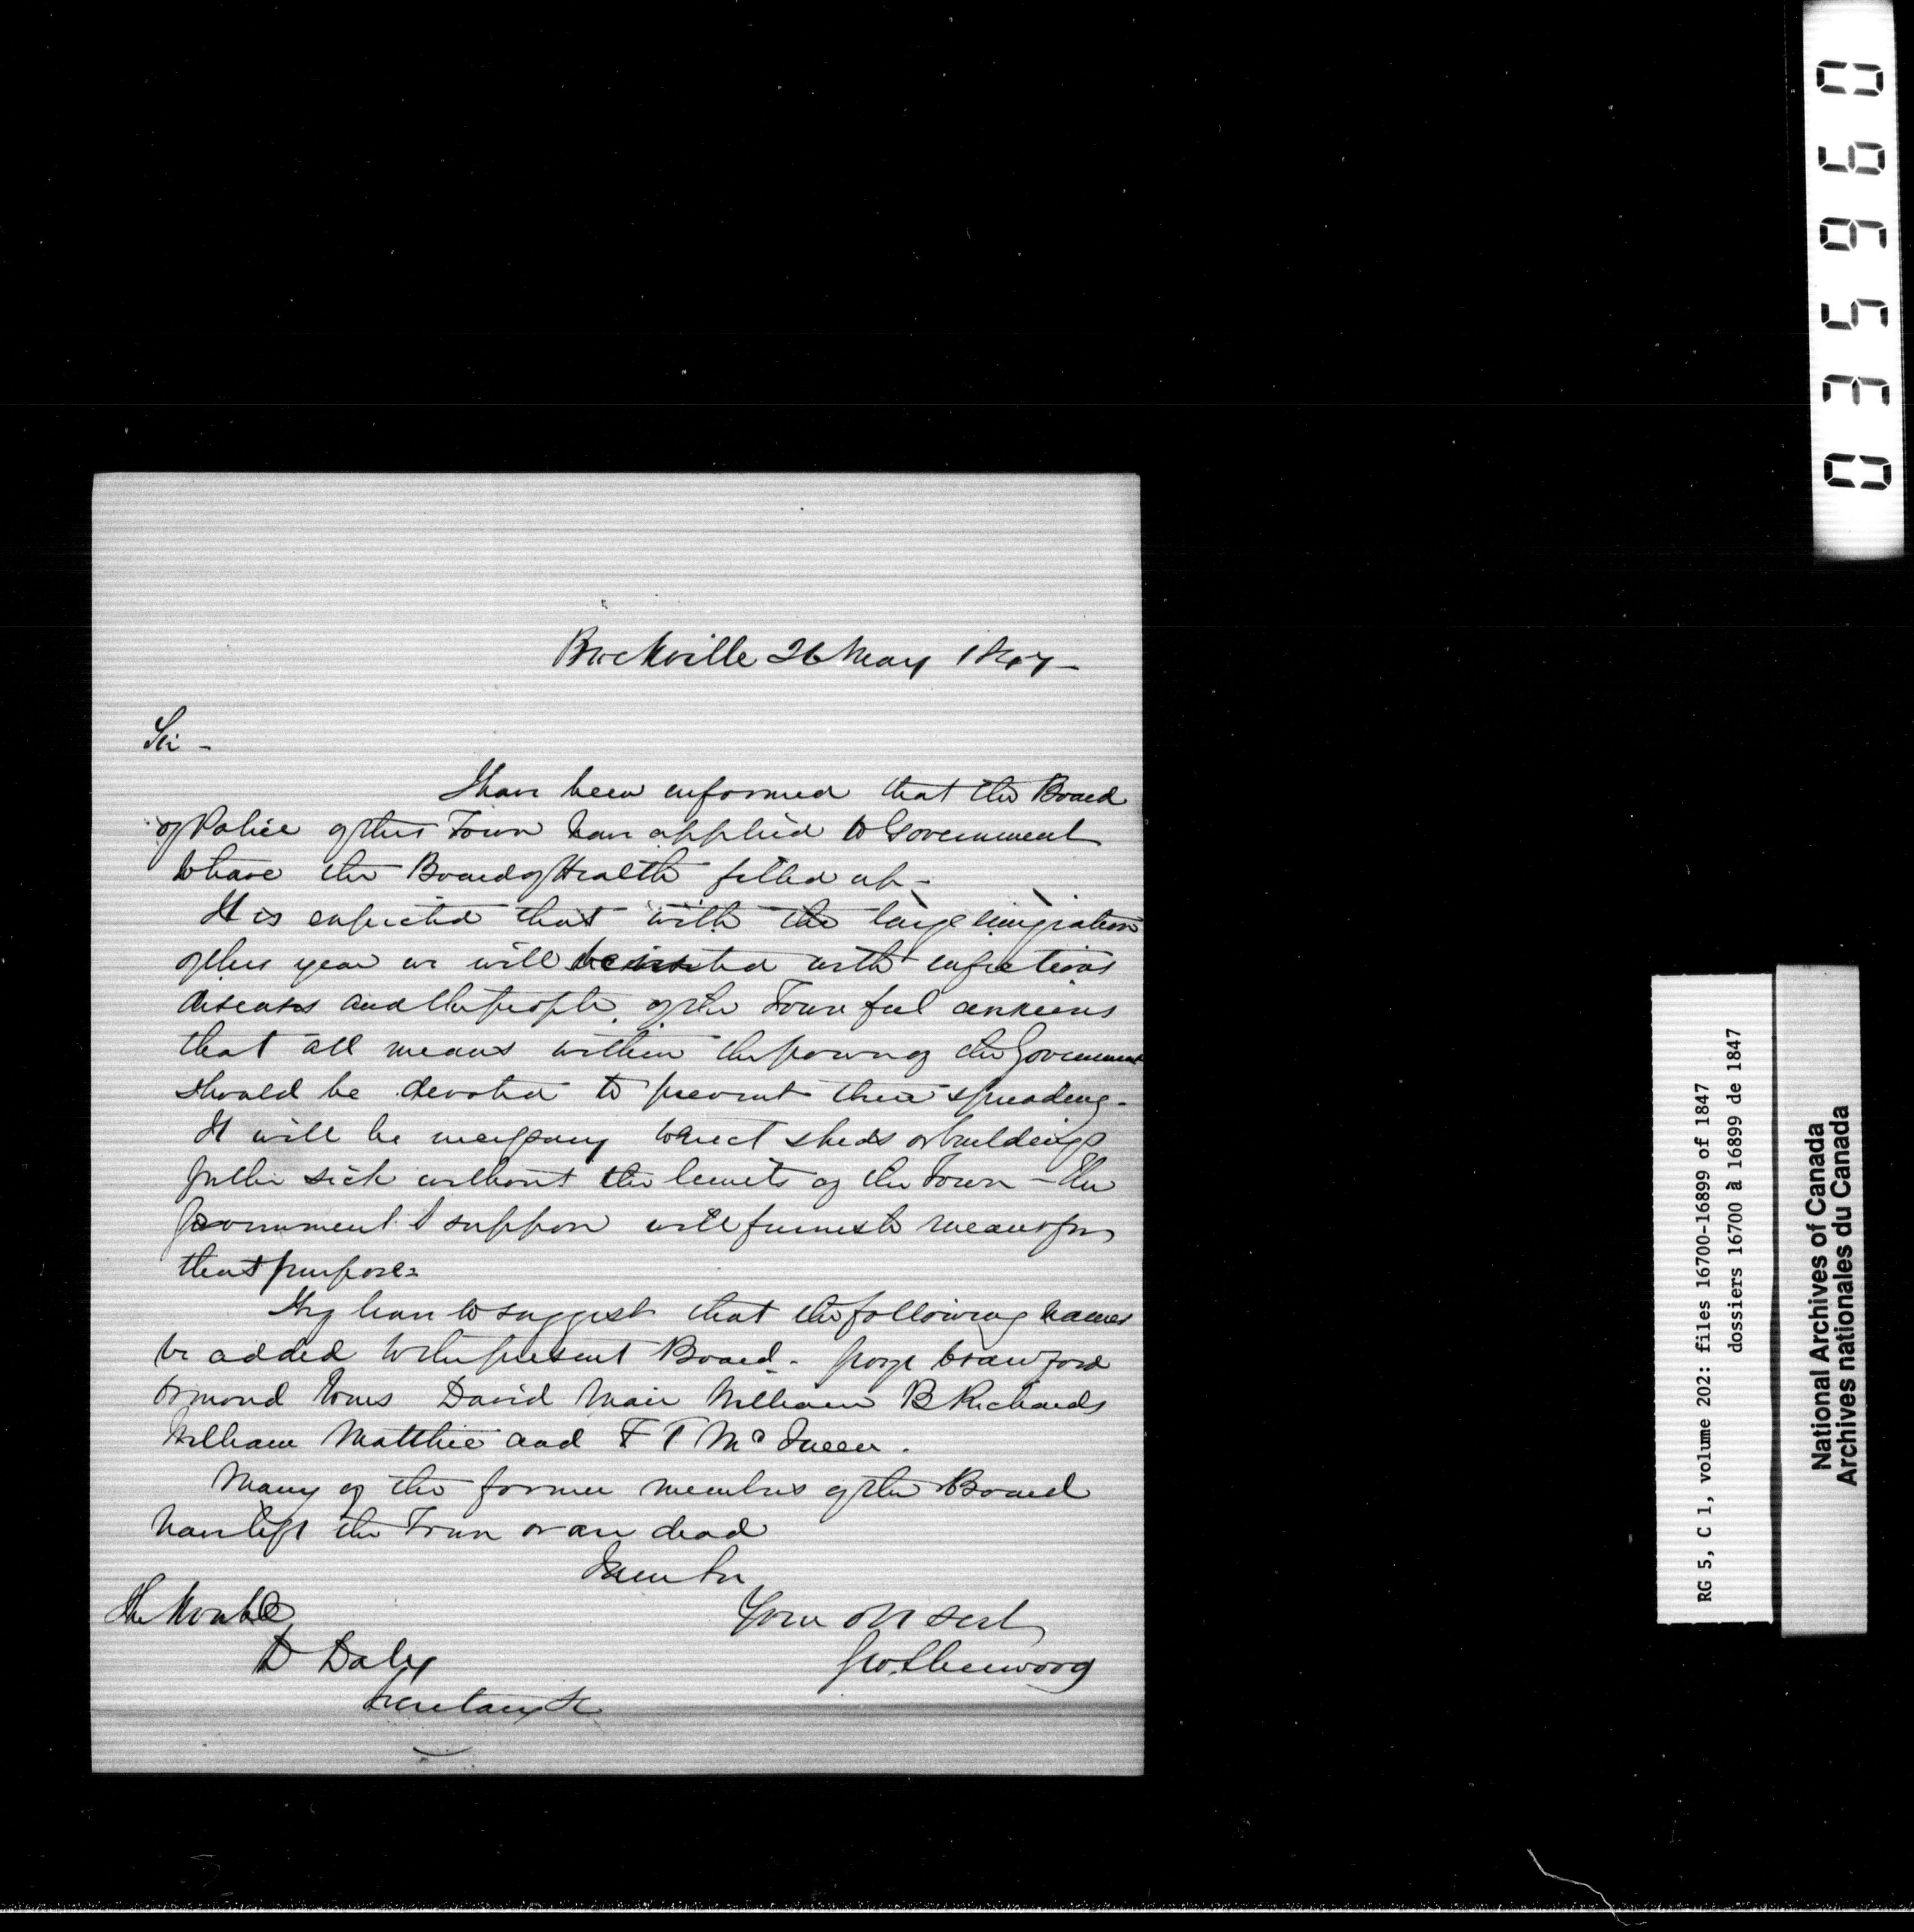 Brockville 26 May 1847 -
Sir -
I have been informed that the Board
of Police of this Town have applied to Government
to have the Board of Health filled up -
It is expected that with the large emigration
of this year we will be visited with infectious
diseases and the people of the Town feel anxious
that all means within the power of the Government
should be devoted to prevent their spreading -
It will be necessary to erect sheds or buildings
for the sick without the limits of the Town - The
Government I suppose will furnish means for
that purpose -
I beg leave to suggest that the following names
be added to the present Board - George Crawford
Ormond Jones David Mair William B Richards
William Matthie and F T McQueen.
Many of the former members of the Board
have left the Town or are dead
I am Sir
Your Ob Servt
Geo. Sherwood
The Honble
D Daly
Secretary &c
035960
RG 5, C 1, volume 202: files 16700-16899 of 1847
dossiers 16700 à 16899 de 1847
National Archives of Canada
Archives nationales du Canada